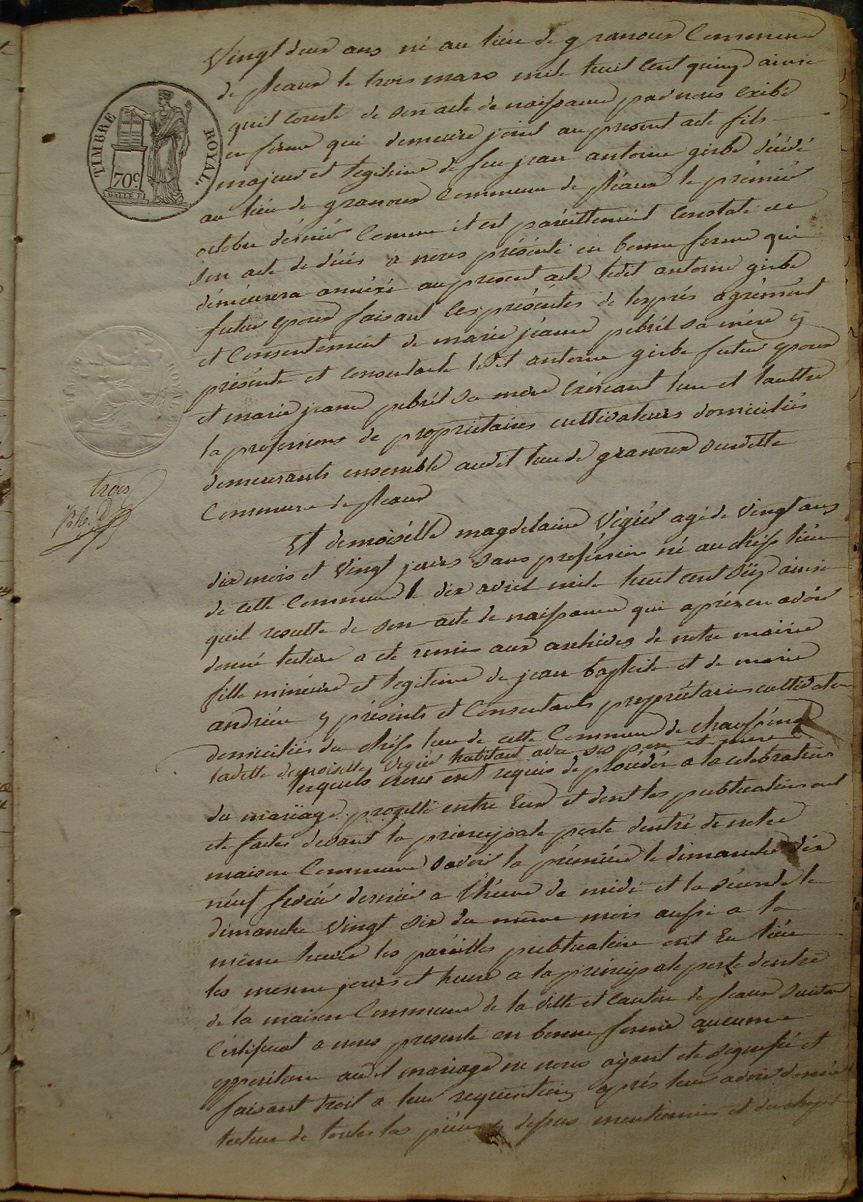 TIMBRE ROYAL.
70c
Vingt deux ans né au lieu de granoux Commune
de pleaux le trois mars mile huit cent quinze ainsi
quil conste de son acte de naissance par nous exibé
en forme qui demeure joint au present acte fils
majeur et legitime de feu jean antoine girbe décédé
au lieu de granoux Commune de pleaux le premier
octobre dernier Comme il est pareillement constaté
son acte de décés a nous présenté en bonne forme qui
démeurera annéxé au present acte ledit antoine girbe
futur epoux faisant les présentes de lexprés agrément
et Consentement de marie jeanne pebrel sa mére y
présente et consentante ledit antoine girbe futur epoux
et marie jeanne pebrel sa mére Exércant lun et lauttre
la professions de propriétaires cultivateurs domiciliés
demeurants ensemble audit lieu de granoux susditte
Commune de pleaux
trois
Et demoiselle magdelaine Vigier agé de Vingt ans
dix mois et Vingt jours sans profession né au chéf lieu
de cette Commune le dix avril mile huit cent Seize ainsi
quil resulte de son acte de naissance qui aprés en avoir
donné lecture a eté remis aux archives de notre mairie
fille mineure et legitime de jean baptiste et de marie
andrieu y présents et Consentants propriétaires cultivateurs
domiciliés du chéf lieu de cette Commune de chaussenac
ladtte demoiselle Vigier habitant avec ses pere et mere
lesquels nous ont requis de proceder a la celebration
du mariage projetté entre Eux et dont les publications ont
eté faites devant la principale porte dentré de notre
maison Commune savoir la prémiére le dimanche dix
neuf fevrié dernier a lheure de midi et la séconde le
dimanche Vingt six du même mois aussi a la
même heure les pareilles publications ont Eu lieu
les mesme jours et heure a la principale porte dentré
de la maison Commune de la ville et canton de pleaux suivant
Certificat a nous presenté en bonne forme aucune
opposition audit mariage ne nous ayant eté signifié et
faisant droit a leur requisition aprés leur avoir donné
lecture de toutes les piéces dessus mentionnés et du chapitre